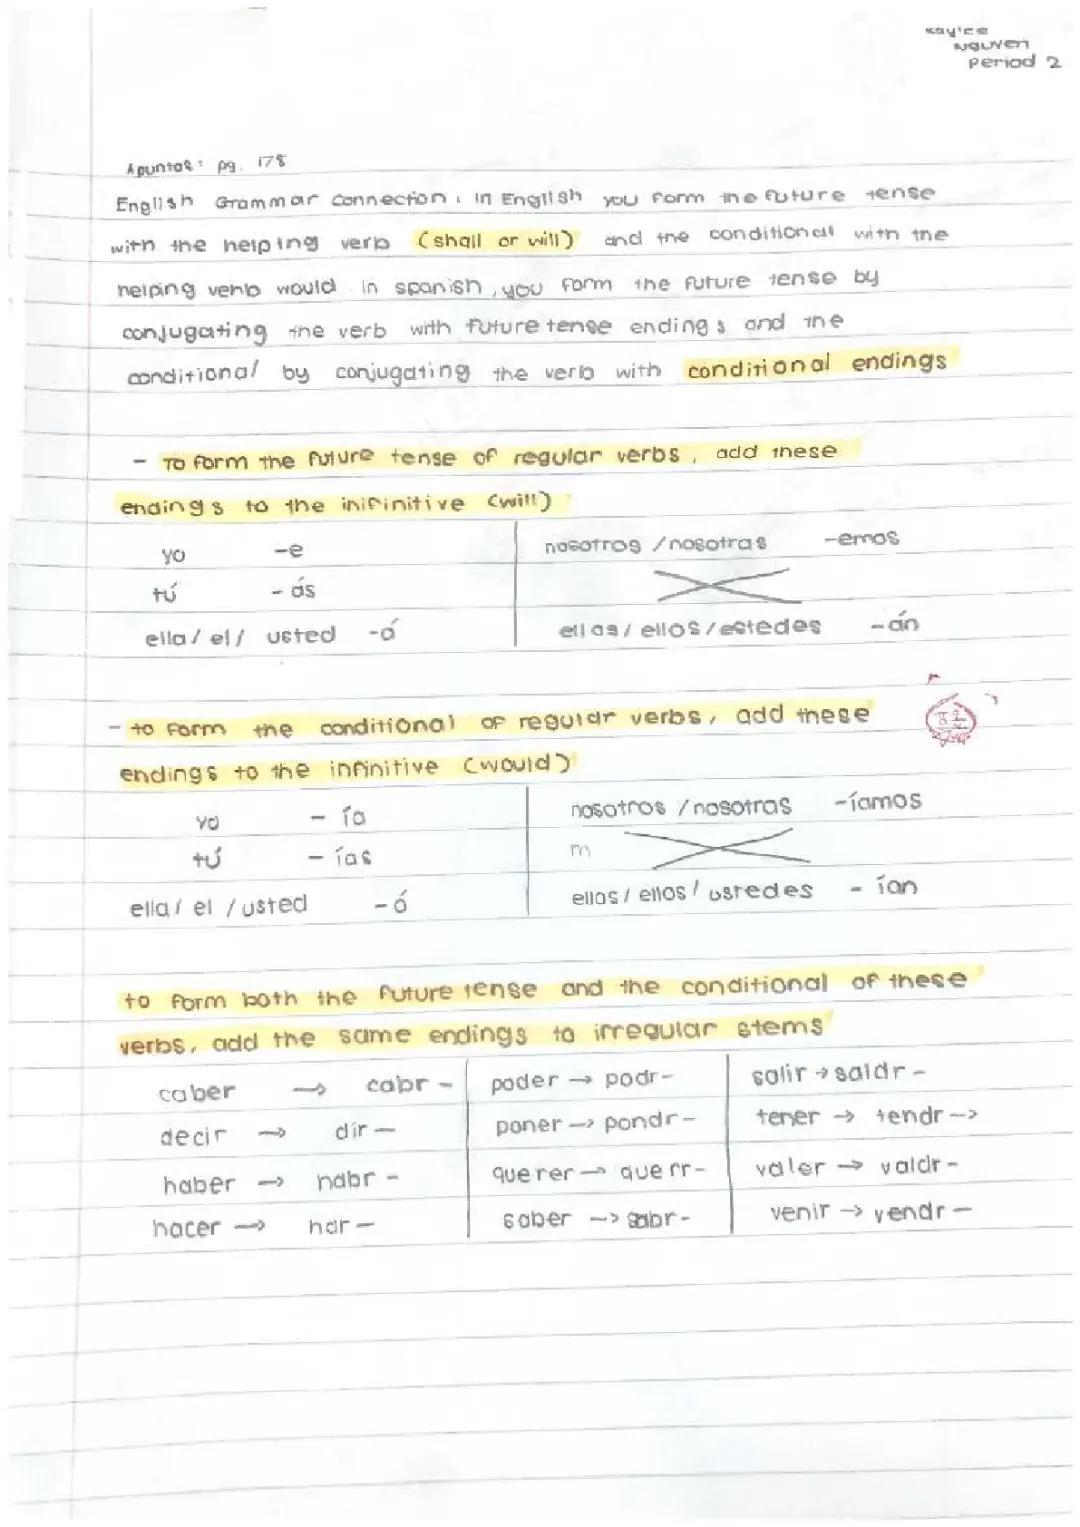 Kaylee
Nguyen
Period 2
Apuntas: pg. 178
English Grammar connection: In English you form the future tense
with the helping verb (shall or will) and the conditional with the
helping verb would. In spanish, you form the future tense by
conjugating the verb with future tense endings and the
conditional by conjugating the verb with conditional endings
- To form the future tense of regular verbs, add these
endings to the inifinitive (will)
yo -e nosotros /nosotras -emos
tú - ás
ella/ el/ usted -á ellas/ ellos/estedes -án
- to form the conditional of regular verbs, add these
endings to the infinitive (would)
yo - ía nosotros /nosotras -íamos
tú - ías m
ella/ el /usted - ó ellas/ ellos/ ustedes - ían
to form both the future tense and the conditional of these
verbs, add the same endings to irregular stems
caber → cabr - poder → podr- salir → saldr -
decir → dir - poner → pondr - tener → tendr ->
haber → habr - querer → querr- valer → valdr -
hacer → har - saber -> sabr - venir → vendr -